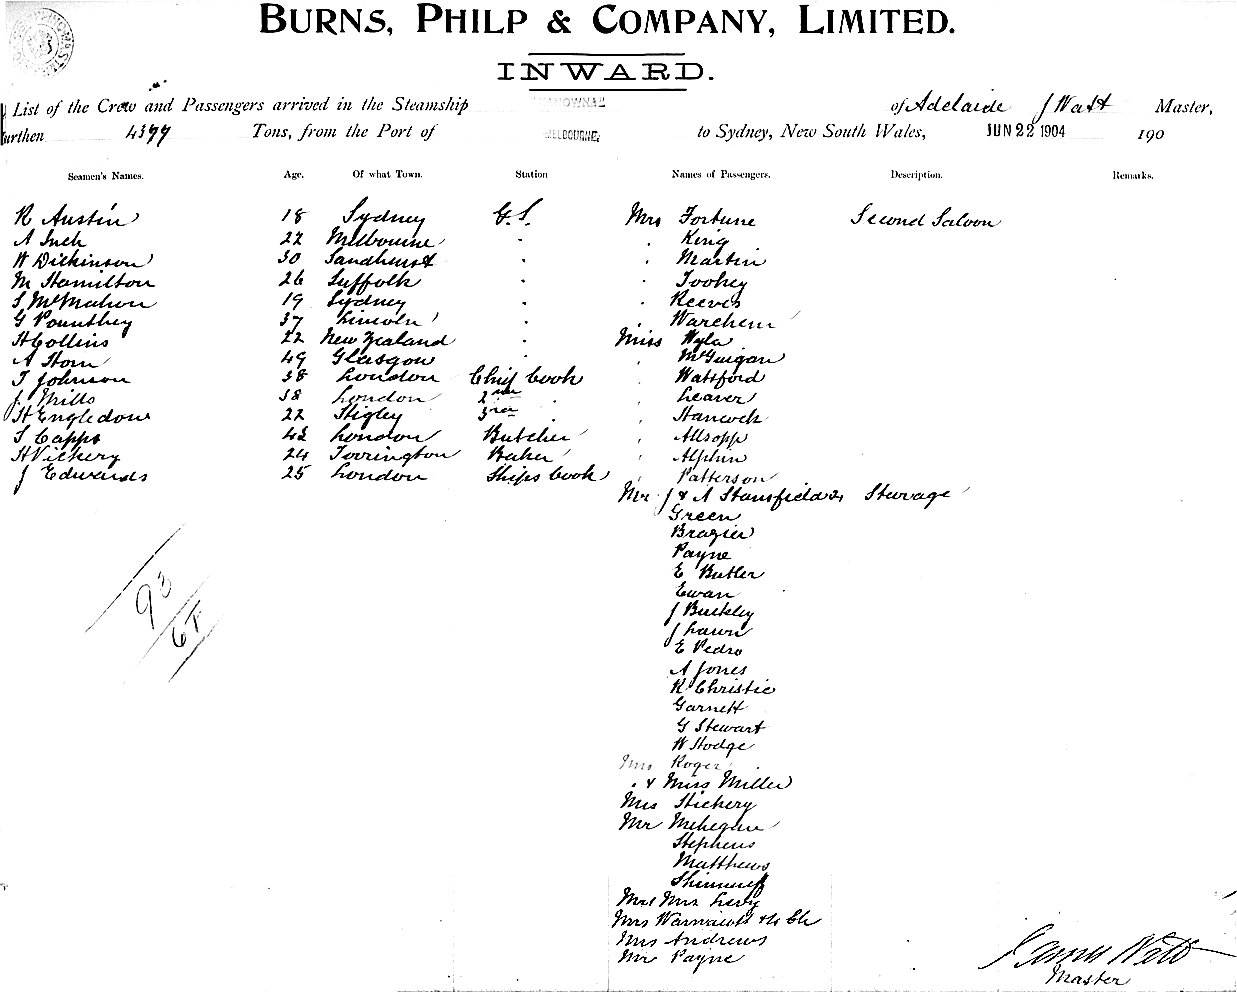 BURNS, PHILP & COMPANY, LIMITED.
INWARD.
List of the Crew and Passengers arrived in the Steamship of Adelaide J Watt Master,
urthen 4399 Tons, from the Port of MELBOURNE, to Sydney, New South Wales, JUN 22 1904 190
Seamen's Names. Age. Of what Town. Station Names of Passengers. Description. Remarks.
R Austin 18 Sydney G.S. Mrs Fortune Second Saloon
A Inch 22 Melbourne " King
W Dickinson 30 Sandhurst " Martin
M Hamilton 26 Suffolk " Toohey
S McMahon 19 Sydney " Reeves
G Pounthey 37 Lincoln " Warehem
H Collins 22 New Zealand " Miss Wyla
A Horn 49 Glasgow " McGuigan
T Johnson 38 London Chief Cook " Watsford
J Mills 38 London 2nd " " Leaver
H Engledow 22 Higley 3rd " " Hancock
S Capps 42 London Butcher " Allsopp
H Vickery 24 Torrington Baker " Alphin
J Edwards 25 London Ships Cook " Patterson
Mr J & A Stansfield Steerage
Green
Brazier
Payne
E Butler
Ewan
J Buckley
J Lawn
E Pedro
A Jones
R Christie
Garnett
G Stewart
W Hodge
Mrs Roger
" & Miss Miller
Mrs Hickery
Mr Mehegan
Stephens
Matthews
Mr & Mrs Levy
Mrs & 4 Ch
Mrs Andrews
Mr Payne
93
67
James Watt
Master